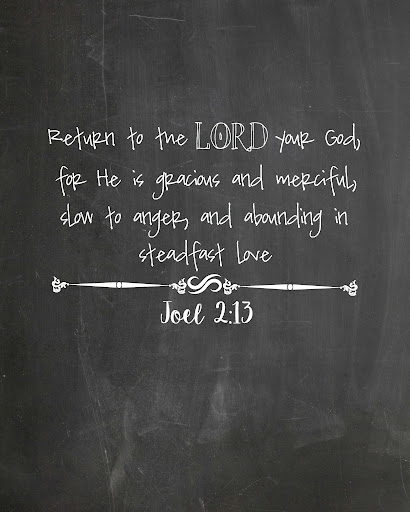 Return to the LORD your God,
for He is gracious and merciful,
slow to anger, and abounding in
steadfast love
Joel 2:13